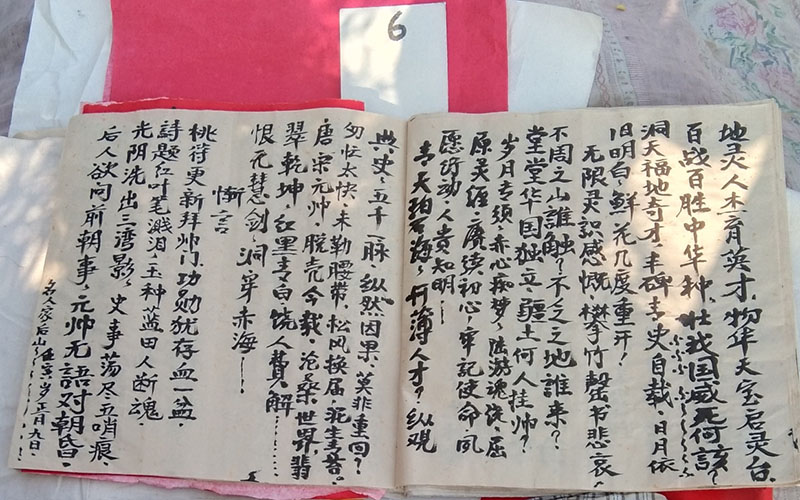 6
地灵人杰育英才，物华天宝启灵台。
百战百胜中华种，壮我国威死何该？
洞天福地奇才，丰碑青史自载，日月依
旧明白，鲜花几度重开！
无限灵识感慨，攀竹罄书悲哀！
不周之山誰触？不之之地誰来？
堂堂华国独立，疆土何人挂帅？
岁月青须，赤心痴梦，陆游魂饶，屈
原灵经，赓续初心，牢记使命，夙
愿行动，人贵知明——
青天碧海，有薄人才？纵观
典史，五千一脉，纵然因果，莫非重回？
匆忙太快，未勒腰带，松风换届，派生音，
唐宋元帅，脱壳今载，沧桑世界，翡
翠乾坤，红黑青白饶人費解——
恨无慧剑，洞穿赤海——
慚言
桃符更新拜帅门，功勋犹存血一盆，
詩題红叶笔溅泪，玉种蓝田人断魂，
光阴洗出三湾影，史事荡尽五哨痕，
后人欲问前朝事，元帅无語对朝昏。
名人家后山
壬寅岁正月九日